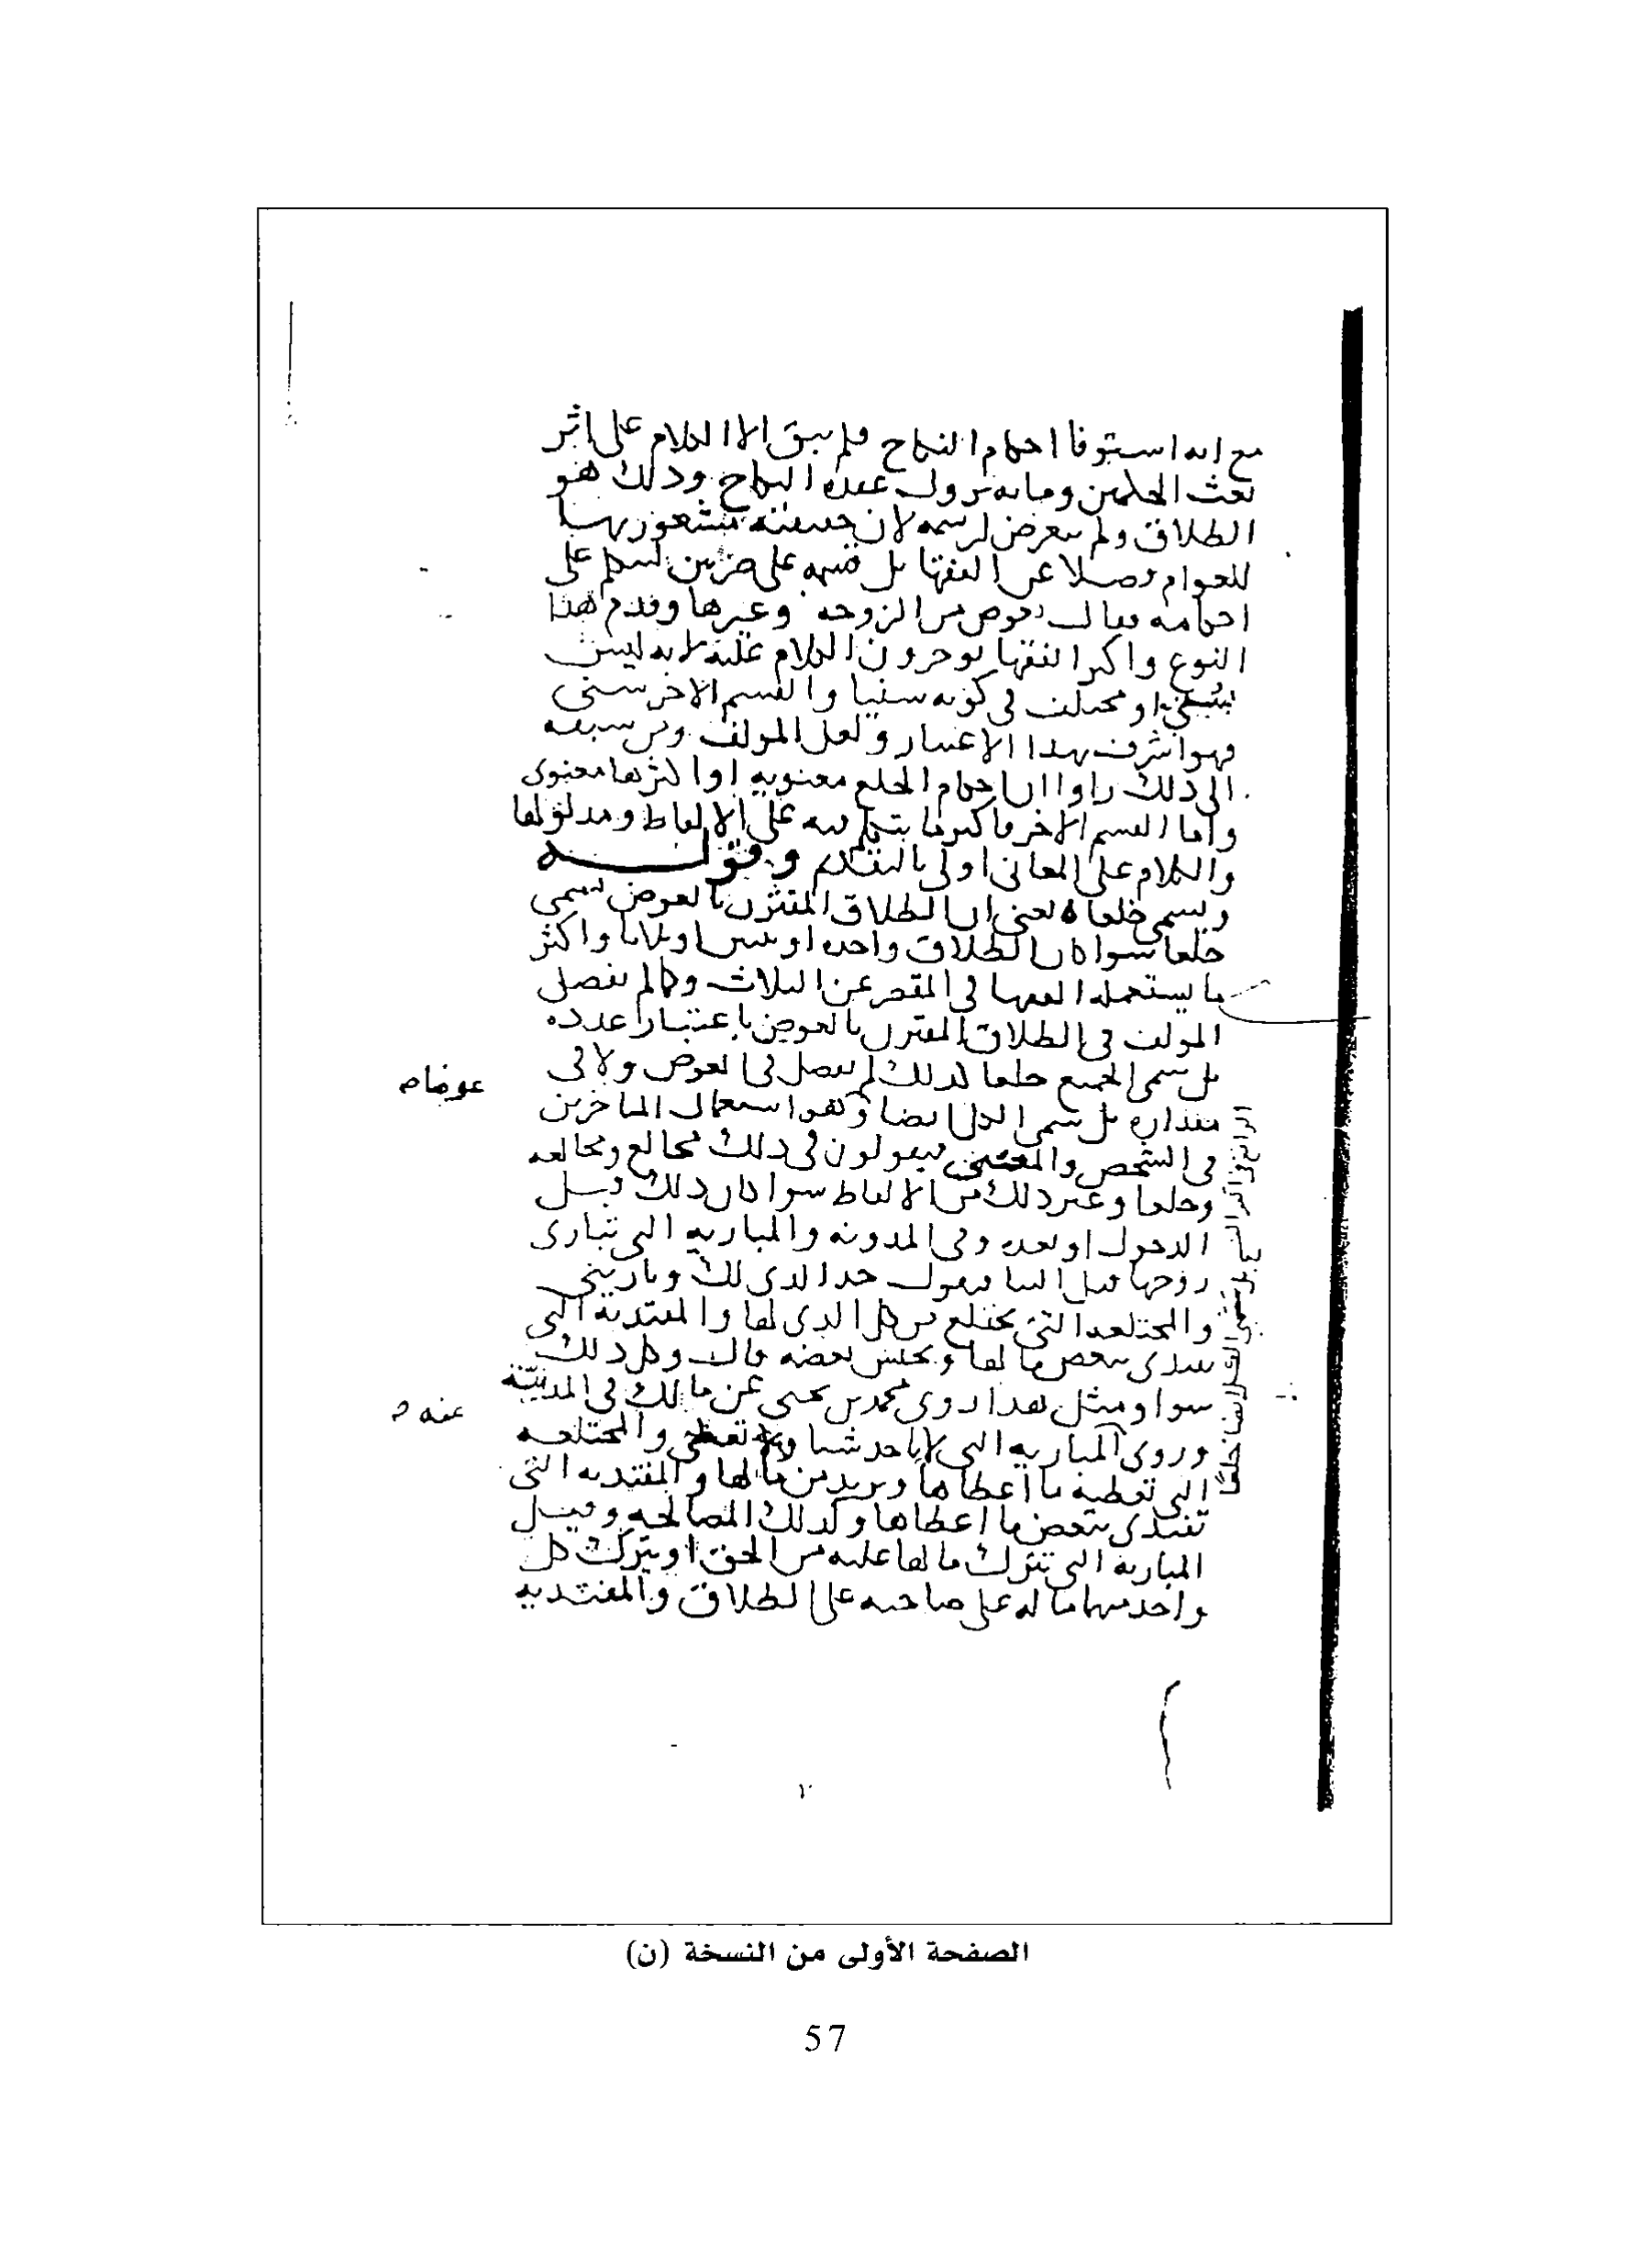 مع انه استوفا احكام النكاح فلم يبق الا الكلام على اثر
بعث الحكمين وما به يزول عقد النكاح وذلك هو
الطلاق ولم يتعرض لرسمه لان حقيقته مشعور بها
للعوام فضلا عن الفقها بل قسمه على ضربين ليتكلم على
احكامه فقال بعوض من الزوجه وغيرها وقدم هذا
النوع واكثر الفقها يوخرون الكلام عليه لانه ليس
بسني او مختلف في كونه سنيا والقسم الاخر سني
فهو اشرف بهذا الاعتبار ولعل المولف ومن سبقه
الى ذلك راوا ان احكام الخلع معنويه او اكثرها معنوى
واما القسم الاخر فاكثر ما يتكلم فيه على الالفاظ ومدلولها
والكلام على المعاني اولى بالتقديم وقوله
ويسمى خلعا يعني ان الطلاق المقترن بالعوض يسمى
خلعا سوا كان الطلاق واحده او اثنتين او ثلاثا واكثر
ما يستعمله الفقها في المقصر عن الثلاث وكما لم يفصل
المولف في الطلاق المقترن بالعوض باعتبار عدده
بل سمى الجميع خلعا كذلك لم يفصل في العوض ولا في
عوضا ص
مقداره بل سمى الكل ايضا وهو استعمال المتاخرين
في الشخص والمعنى فيقولون في ذلك مخالع ومخالعه
وخلعا وغير ذلك من الالفاظ سوا كان ذلك قبل
الدخول او بعده وفي المدونه والمباريه التي تبارى
زوجها قبل البنا فيقول خذ الذى لك وتاركني
والمختلعه التي تختلع من كل الذى لها والمفتديه التي
تفتدى ببعض ما لها وتحبس بعضه قال وكل ذلك
سوا ومثل هذا روى محمد بن يحيى عن مالك في المدنية
عنه ص
وروى المباريه التي لا تاخذ شيا ولا تعطى والمختلعه
التي تعطيه ما اعطاها وتزيد من مالها والمفتديه التي
تفتدى ببعض ما اعطاها وكذلك المصالحه وقيل
المباريه التي تترك ما لها عليه من الحق او يترك كل
واحد منهما ما له على صاحبه على الطلاق والمفتديه
الصفحة الأولى من النسخة (ن)
57